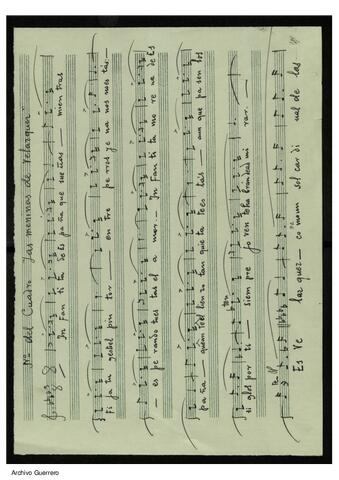 Nº del Cuadro "Las meninas de Velazquez"
In Fan ti ta de Es pa ña que sue ñas — mien tras
Fi ja tu gentil pin tor — en tre pe rros y e na nos mos tas. —
— es pe rando mes tas el a mor. — In Fan ti ta mo re na de Es
pa ña — quien del lien zo tan quie ta te es tás — aun que pa sen los
si glos por ti — siem pre jo ven te ha brán de ad mi rar. —
Es Ve
laz quez — co mo un sol car di nal de las
Archivo Guerrero